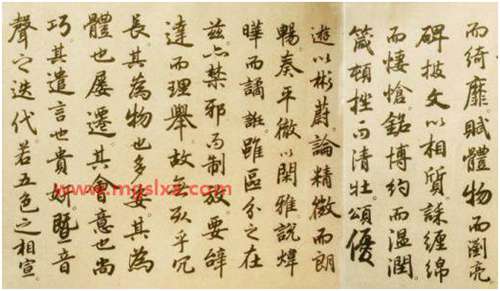 而綺靡賦體物而瀏亮
碑披文以相質誄纏綿
而悽愴銘博約而溫潤
箴頓挫而清壯頌優
遊以彬蔚論精微而朗
暢奏平徹以閑雅說煒
曄而譎誑雖區分之在
茲亦禁邪而制放要辭
達而理舉故無取乎冗
長其為物也多姿其為
體也屢遷其會意也尚
巧其遣言也貴妍暨音
聲之迭代若五色之相宣
www.mgslxa.com